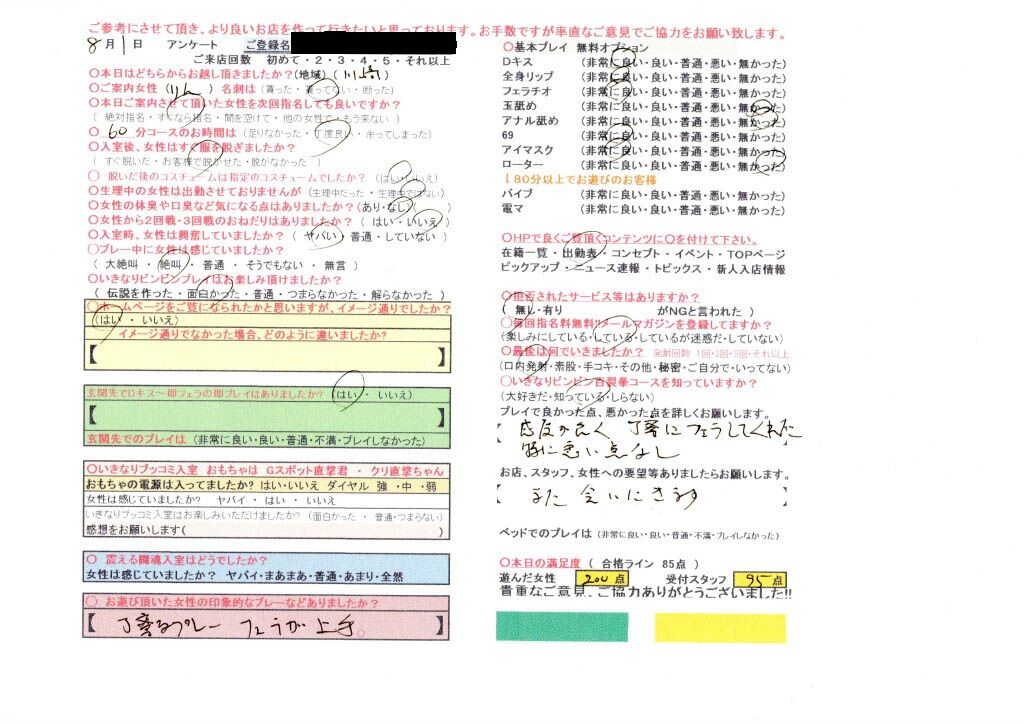 ご参考にさせて頂き、より良いお店を作って行きたいと思っております。お手数ですが率直なご意見でご協力をお願い致します。
8月1日 アンケート ご登録名
ご来店回数 初めて・2・3・4・5・それ以上
〇本日はどちらからお越し頂きましたか?(地域) (川崎)
〇ご案内女性 ( ) 名刺は (貰った・貰ってない・断った)
〇本日ご案内させて頂いた女性を次回指名しても良いですか?
( 絶対指名・すぐなら指名・間を空けて・他の女性で・もう来ない )
〇 60 分コースのお時間は (足りなかった・丁度良い・余ってしまった)
〇入室後、女性はすぐ服を脱ぎましたか?
( すぐ脱いだ・お客様で脱がせた・脱がなかった )
〇 脱いだ後のコスチュームは指定のコスチュームでしたか? (はい・いいえ)
〇生理中の女性は出勤させておりませんが (生理中だった・生理中ではない)
〇女性の体臭や口臭など気になる点はありましたか? (あり・なし)( )
〇女性から2回戦・3回戦のおねだりはありましたか? ( はい・いいえ )
〇入室時、女性は興奮していましたか? ( ヤバい・普通・していない )
〇プレー中に女性は感じていましたか?
( 大絶叫・ 絶叫・ 普通 ・ そうでもない ・ 無言 )
〇いきなりビンビンプレイはお楽しみ頂けましたか?
( 伝説を作った・面白かった・普通・つまらなかった・解らなかった )
〇ホームページをご覧になられたかと思いますが、イメージ通りでしたか?
(はい・いいえ)
イメージ通りでなかった場合、どのように違いましたか?
【 】
玄関先でDキス～即フェラの即プレイはありましたか? (はい ・ いいえ)
【 】
玄関先でのプレイは (非常に良い・良い・普通・不満・プレイしなかった)
〇いきなりブッコミ入室 おもちゃは Gスポット直撃君 ・ クリ直撃ちゃん
おもちゃの電源は入ってましたか? はい・いいえ ダイヤル 強 ・中 ・弱
女性は感じていましたか? ヤバイ ・ はい ・ いいえ
いきなりブッコミ入室はお楽しみいただけましたか? (面白かった ・ 普通・つまらない)
感想をお願いします( )
〇 震える闘魂入室はどうでしたか?
女性は感じていましたか? ヤバイ・まあまあ・普通・あまり・全然
〇 お遊び頂いた女性の印象的なプレーなどありましたか?
【 丁寧なプレー フェラが上手。 】
〇基本プレイ 無料オプション
Dキス (非常に良い・良い・普通・悪い・無かった)
全身リップ (非常に良い・良い・普通・悪い・無かった)
フェラチオ (非常に良い・良い・普通・悪い・無かった)
玉舐め (非常に良い・良い・普通・悪い・無かった)
アナル舐め (非常に良い・良い・普通・悪い・無かった)
69 (非常に良い・良い・普通・悪い・無かった)
アイマスク (非常に良い・良い・普通・悪い・無かった)
ローター (非常に良い・良い・普通・悪い・無かった)
↓80分以上でお遊びのお客様
バイブ (非常に良い・良い・普通・悪い・無かった)
電マ (非常に良い・良い・普通・悪い・無かった)
〇HPで良くご覧頂くコンテンツに〇を付けて下さい。
在籍一覧・出勤表・コンセプト・イベント・TOPページ
ピックアップ・ニュース速報・トピックス・新人入店情報
〇拒否されたサービス等はありますか?
( 無し・有り がNGと言われた )
〇毎回指名料無料!!メールマガジンを登録してますか?
(楽しみにしている・しているが迷惑だ・していない)
〇最後は何でいきましたか? 発射回数 1回・2回・3回・それ以上
(口内発射・素股・手コキ・その他・秘密・ご自分で・いってない)
〇いきなりビンビン百裂拳コースを知っていますか?
(大好きだ・知っている・しらない)
プレイで良かった点、悪かった点を詳しくお願いします。
感度が良く 丁寧にフェラしてくれた
特に悪い点なし
お店、スタッフ、女性への要望等ありましたらお願いします。
また 会いにきます
ベッドでのプレイは (非常に良い・良い・普通・不満・プレイしなかった)
〇本日の満足度 ( 合格ライン 85点 )
遊んだ女性 200 点 受付スタッフ 95 点
貴重なご意見、ご協力ありがとうございました!!